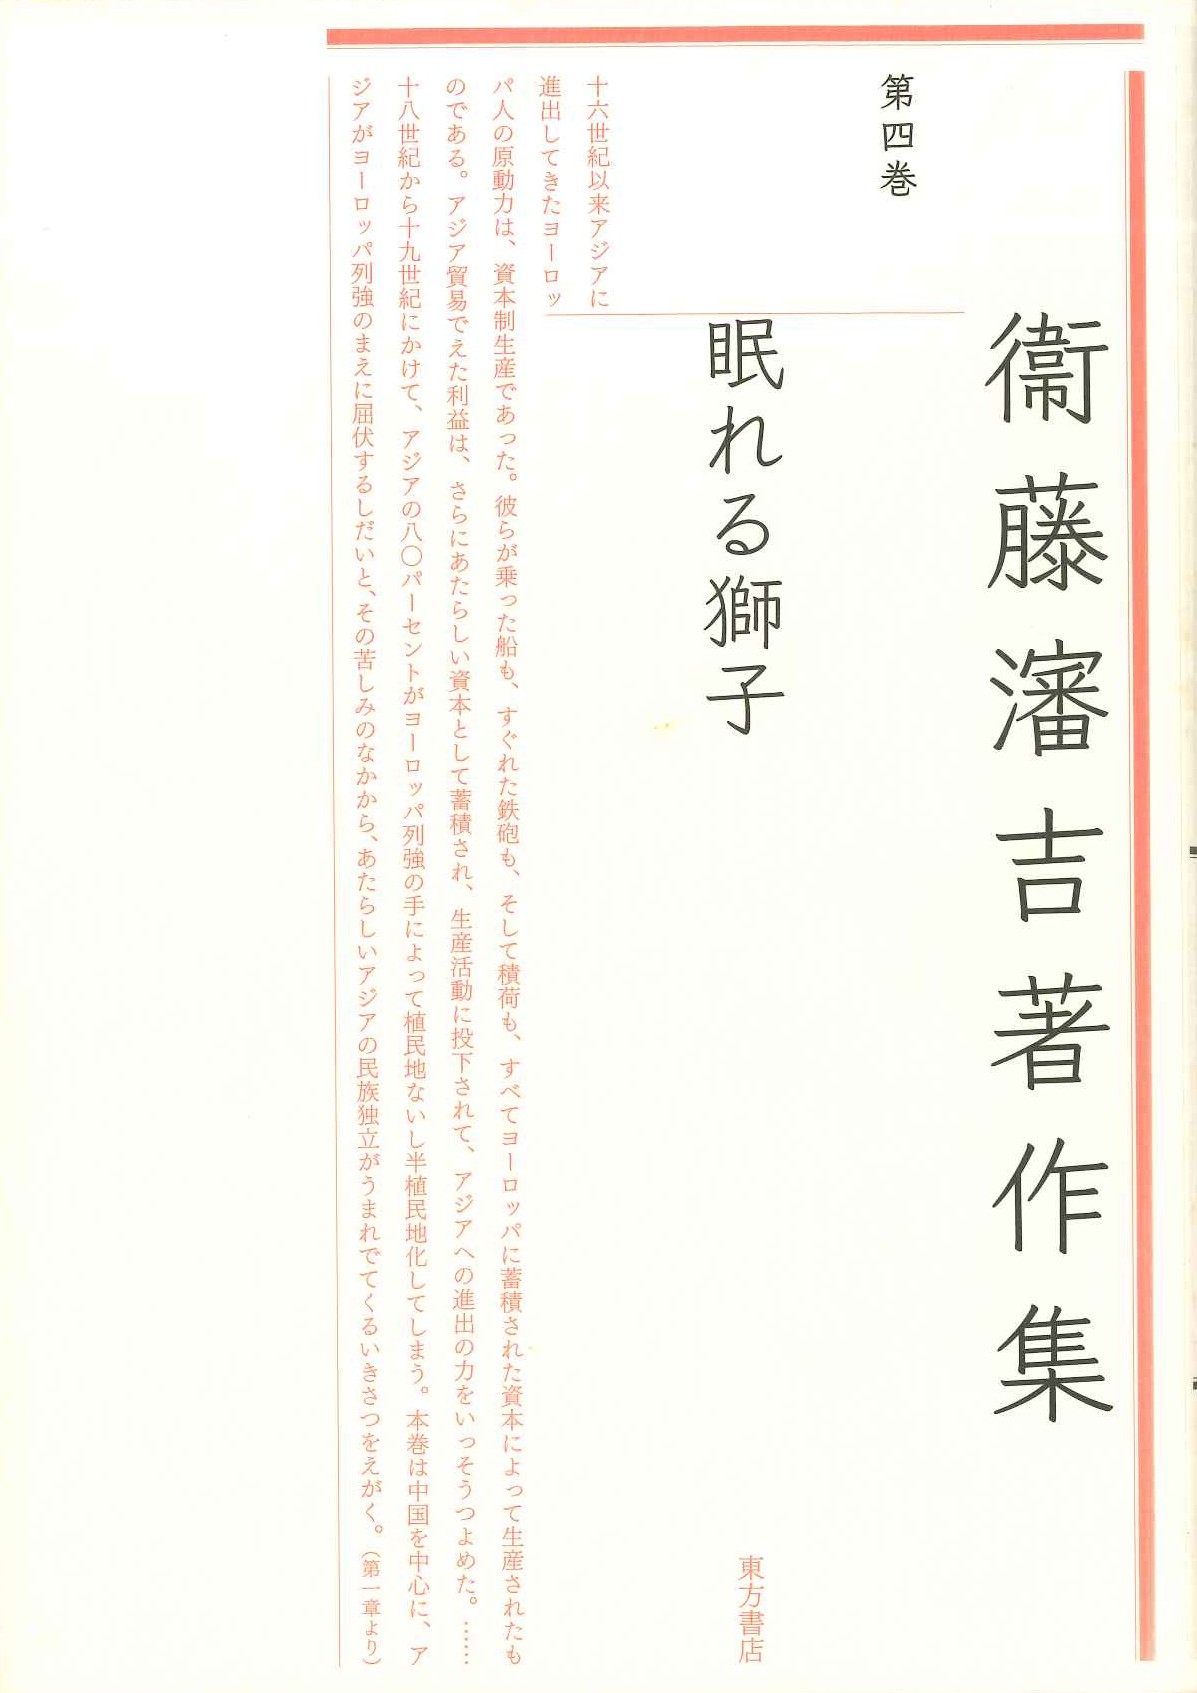 衞藤瀋吉著作集
第四巻
眠れる獅子
十六世紀以来アジアに
進出してきたヨーロッ
パ人の原動力は、資本制生産であった。彼らが乗った船も、すぐれた鉄砲も、そして積荷も、すべてヨーロッパに蓄積された資本によって生産されたも
のである。アジア貿易でえた利益は、さらにあたらしい資本として蓄積され、生産活動に投下されて、アジアへの進出の力をいっそうつよめた。……
十八世紀から十九世紀にかけて、アジアの八〇パーセントがヨーロッパ列強の手によって植民地ないし半植民地化してしまう。本巻は中国を中心に、ア
ジアがヨーロッパ列強のまえに屈伏するしだいと、その苦しみのなかから、あたらしいアジアの民族独立がうまれでてくるいきさつをえがく。(第一章より)
東方書店